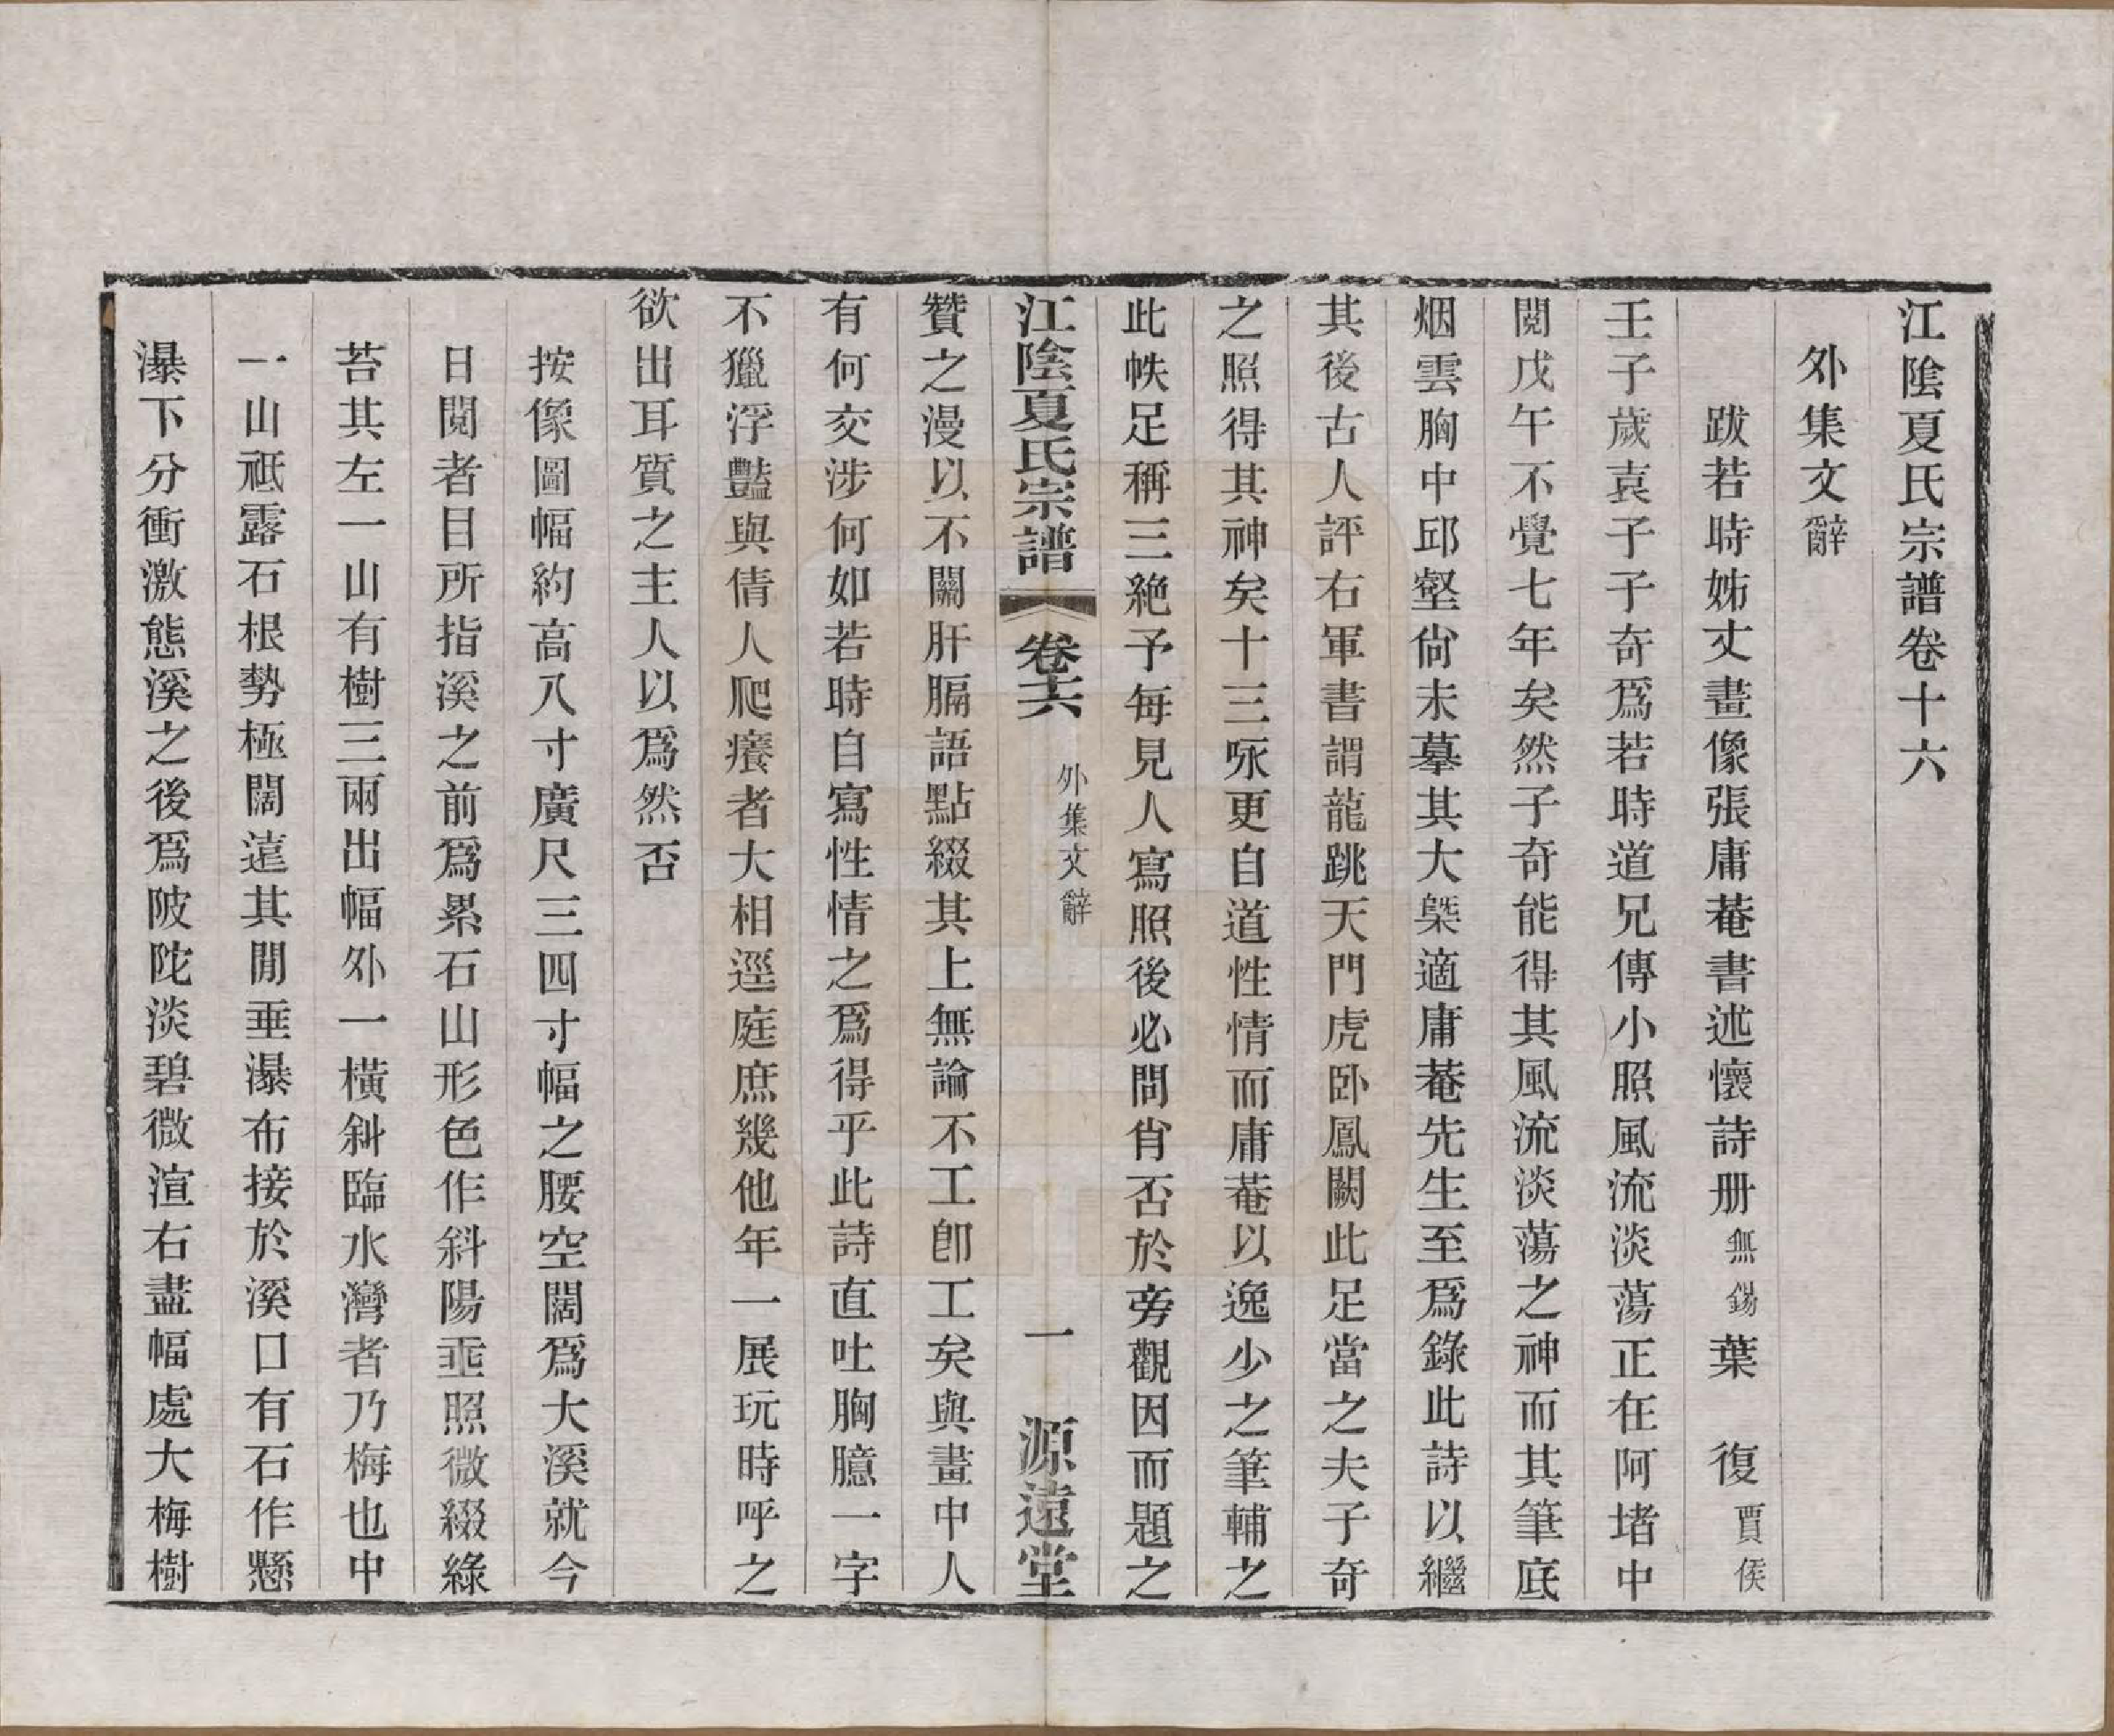 江陰夏氏宗譜卷十六
外集文辭
跋若時姊丈畫像張庸菴書述懷詩册無錫葉　復賈侯
壬子歲袁子子奇爲若時道兄傳小照風流淡蕩正在阿堵中
閱戊午不覺七年矣然子奇能得其風流淡蕩之神而其筆底
烟雲胸中邱壑尙未摹其大槩適庸菴先生至爲錄此詩以繼
其後古人評右軍書謂龍跳天門虎卧鳳闕此足當之夫子奇
之照得其神矣十三咏更自道性情而庸菴以逸少之筆輔之
此帙足稱三絶予每見人寫照後必問肖否於旁觀因而題之
江陰夏氏宗譜　卷十六　外集文辭　一　源遠堂
贊之漫以不關肝膈語點綴其上無論不工卽工矣與畫中人
有何交涉何如若時自寫性情之爲得乎此詩直吐胸臆一字
不獵浮豔與倩人爬癢者大相逕庭庶幾他年一展玩時呼之
欲出耳質之主人以爲然否
按像圖幅約高八寸廣尺三四寸幅之腰空闊爲大溪就今
日閱者目所指溪之前爲累石山形色作斜陽垂照微綴綠
苔其左一山有樹三兩出幅外一橫斜臨水灣者乃梅也中
一山祇露石根勢極闊遠其閒垂瀑布接於溪口有石作懸
瀑下分衝激態溪之後爲陂陀淡碧微渲右盡幅處大梅樹